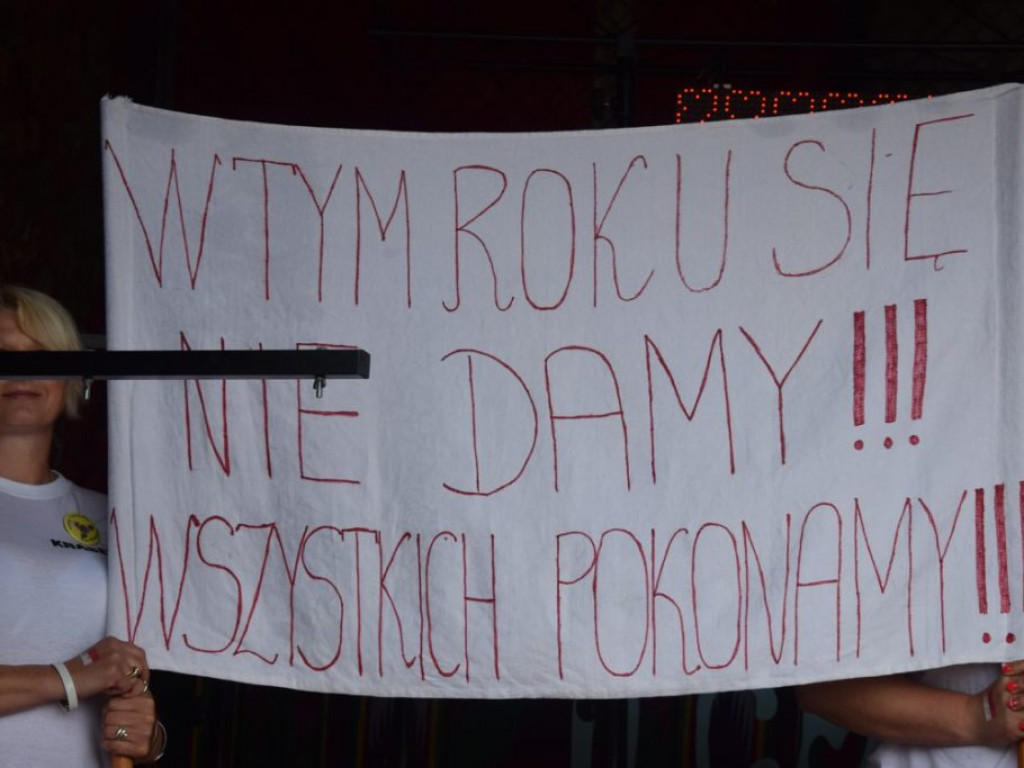 W TYM ROKU SIĘ
NIE DAMY!!!
WSZYSTKICH POKONAMY!!!